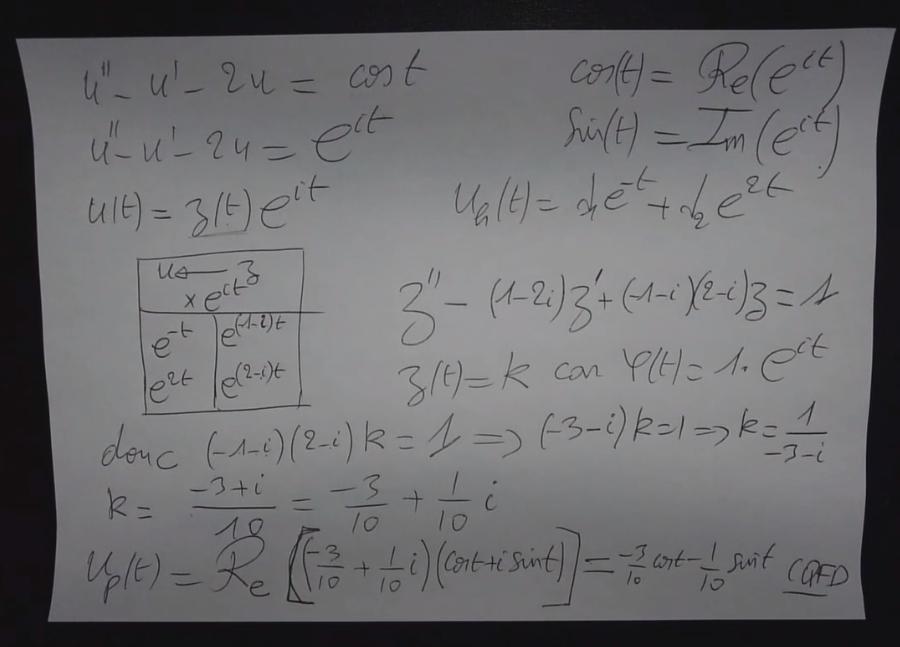 u'' - u' - 2u = cos t
cos(t) = Re(e^{it})
u'' - u' - 2u = e^{it}
Sin(t) = Im(e^{it})
u(t) = z(t) e^{it}
u_h(t) = d_1 e^{-t} + d_2 e^{2t}
u ← z
× e^{it}
e^{-t} e^{(-1-i)t}
e^{2t} e^{(2-i)t}
z'' - (1-2i)z' + (-1-i)(2-i)z = 1
z(t) = k car φ(t) = 1. e^{it}
donc (-1-i)(2-i)k = 1 ⇒ (-3-i)k=1 ⇒ k = 1/(-3-i)
k = (-3+i)/10 = -3/10 + 1/10 i
u_p(t) = Re[(-3/10 + 1/10 i)(cost + i sint)] = -3/10 cost - 1/10 sint CQFD